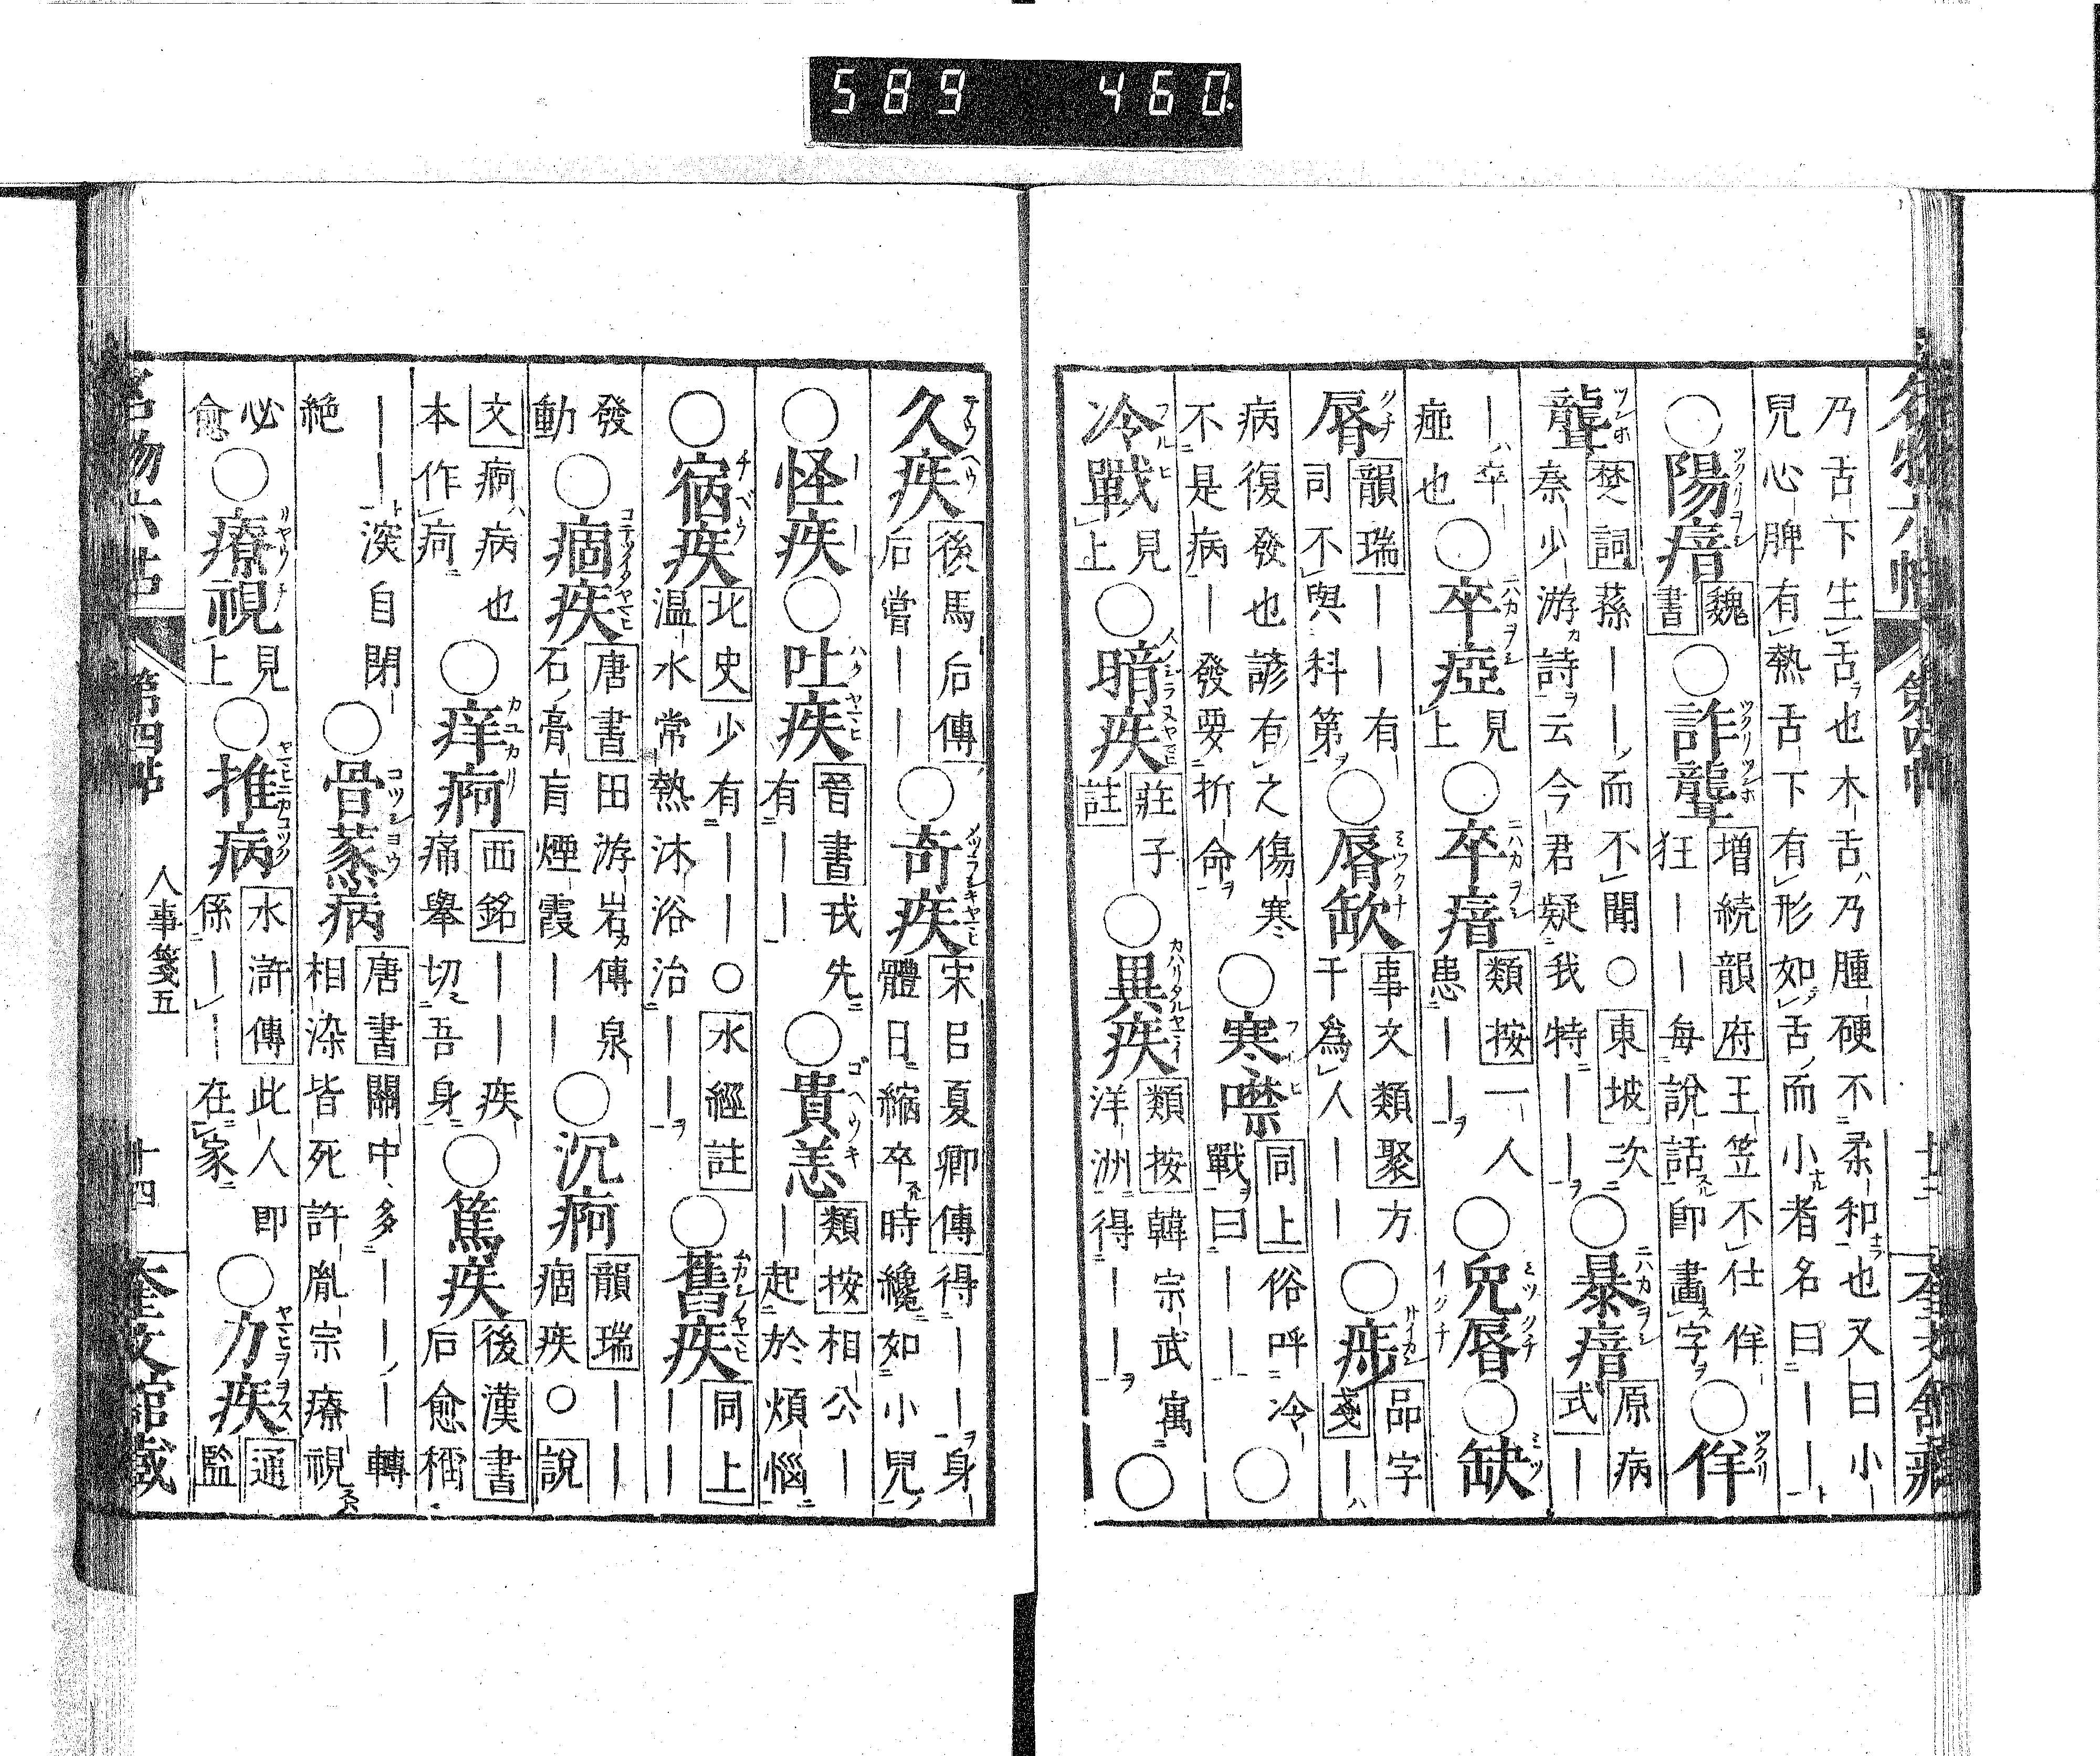 589 460
乃舌下生舌也木舌乃腫硬不柔和也又曰小
兒心脾有熱舌下有形如舌而小者名曰――
○陽瘖 魏書 ○詐聾 増続韻府 王笠不仕佯狂――毎說話即畫字 ○佯
聾 楚詞 蓀――而不聞 ○ 東坡 次秦少游詩云今君疑我特―― ○暴瘖 原病式 ―
―卒瘂也 ○卒瘂 見上 ○卒瘖 類按 一人患―― ○兔脣 ○缺
脣 韻瑞 ――有司不與科第 ○脣缺 事文類聚 方干為人―― ○㾕 品字箋 ―
病復發也諺有之傷寒不是病―發要折命 ○寒噤 同上 俗呼冷戰曰―― ○
冷戰 見上 ○暗疾 莊子註 ○異疾 類按 韓宗武寓洋洲得―― ○
久疾 後馬后傳 后嘗―― ○奇疾 宋呂夏卿傳 得――身體日縮卒時纔如小兒
○怪疾 ○吐疾 晉書 戎先有―― ○貴恙 類按 相公―― 起於煩惱
○宿疾 北史 少有――○ 水經註 温水常熱沐浴治―― ○舊疾 同上 ――
發動 ○痼疾 唐書 田游岩傳泉石膏肓煙霞―― ○沉痾 韻瑞 ――痼疾○ 說
文 痾病也本作疴 ○痒痾 西銘 ――疾痛舉切吾身 ○篤疾 後漢書 后愈稱
――淡自閉絕 ○骨蒸病 唐書 關中多―――轉相染皆死許胤宗療視
必愈 ○療視 見上 ○推病 水滸傳 此人即係――在家 ○力疾 通鑑
名物六帖 第四帖 人事箋五 十四 奎文館蔵